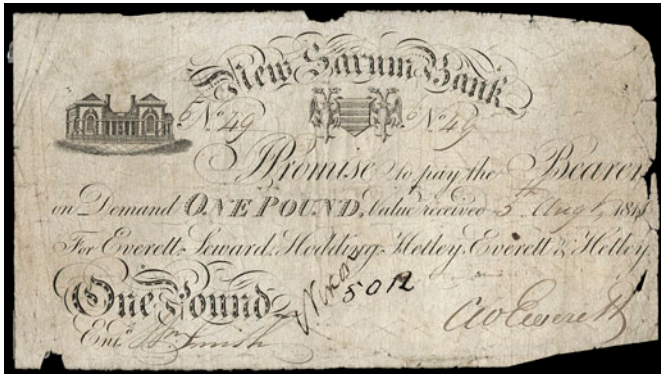 New Sarum Bank
No. 49 No. 49
I Promise to pay the Bearer
on Demand ONE POUND, Value received 5th Augt, 181
For Everett, Leward, Hodding, Hetley, Everett & Hetley
One Pound
5012
Entd. Wm Smith
CW Everett